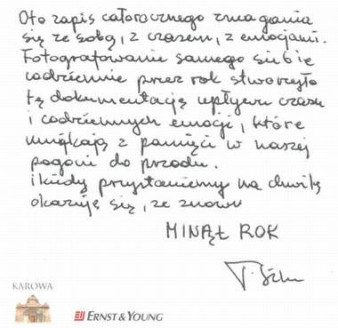 Oto zapis całorocznego zmagania
się ze sobą, z czasem, z emocjami.
Fotografowanie samego siebie
codziennie przez rok stworzyło
tę dokumentację upływu czasu
i codziennych emocji, które
umykają z pamięci w naszej
pogoni do przodu.
i kiedy przystaniemy na chwilę
okazuje się, że znowu
MINĄŁ ROK
KAROWA
ERNST & YOUNG